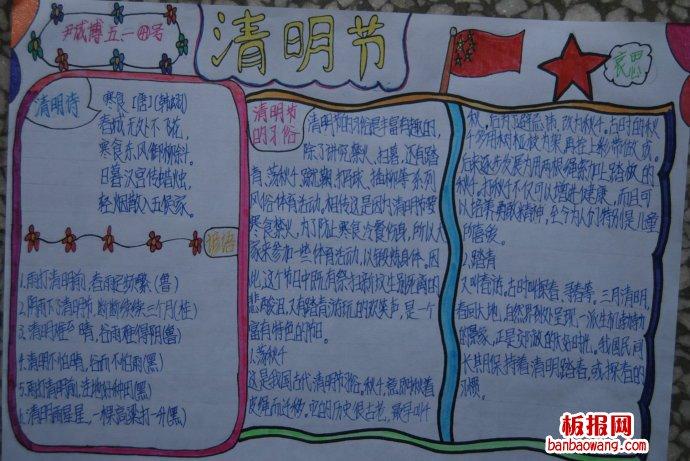 尹成博五一四号
清明节
哀思
清明诗
寒食 [唐] (韩翃)
春城无处不飞花,
寒食东风御柳斜。
日暮汉宫传蜡烛,
轻烟散入五侯家。
谚语
1.雨打清明前,春雨定频繁(鲁)
2.阴雨下了清明节,断断续续三个月(桂)
3.清明难得晴,谷雨难得阴(鲁)
4.清明不怕晴,谷雨不怕雨(黑)
5.雨打清明前,洼地好种田(黑)
6.清明雨星星,一棵高粱打一升(黑)
清明节
的习俗
清明节的习俗是丰富有趣的,
除了讲究禁火、扫墓,还有踏
青、荡秋千、蹴鞠、打马球、插柳等一系列
风俗体育活动。相传这是因为清明节要
寒食禁火,为了防止寒食冷餐伤身,所以大
家来参加一些体育活动,以锻炼身体。因
此,这个节日中既有祭扫新坟生别死离的
悲酸泪,又有踏青游玩的欢笑声,是一个
富有特色的节日。
1.荡秋千
这是我国古代清明节习俗。秋千,意即揪着
皮绳而迁移。它的历史很古老,最早叫千
秋,后为了避忌讳,改为秋千。古时的秋
千多用树桠枝为架,再拴上彩带做成。
后来逐步发展为用两根绳索加上踏板的
秋千。打秋千不仅可以增进健康,而且可
以培养勇敢精神,至今为人们特别是儿童
所喜爱。
2.踏青
又叫春游。古时叫探春、寻春等。三月清明,
春回大地,自然界到处呈现一派生机勃勃
的景象,正是郊游的大好时机。我国民间
长期保持着清明踏青,或探春的
习惯。
板报网
banbaowang.com